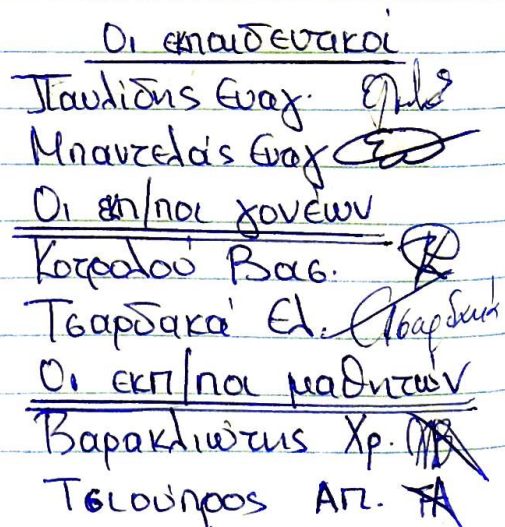 Οι εκπαιδευτικοί
Παυλίδης Ευαγ.
Μπαντελάς Ευαγ
Οι εκ/ποι γονέων
Κοτρολού Βασ.
Τσαρδακά Ελ. Τσαρδακά
Οι εκπ/ποι μαθητών
Βαρακλιώτης Χρ.
Τσιούπρος Απ. ΤΑ